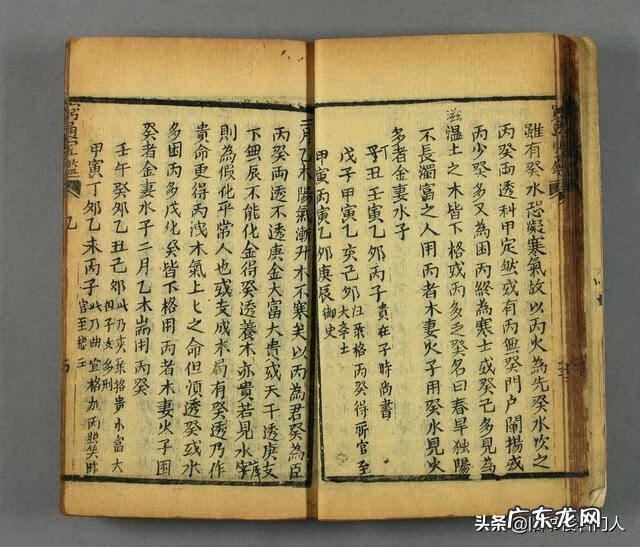 雖有癸水恐凝寒氣故以丙火為先癸水次之
丙癸兩透科甲定然或有丙無癸門户闡揚或
丙少癸多又為困丙終為寒士或癸己多見為
滋濕土之木皆下格或丙多乏癸名曰春旱独陽
不長濁富之人用丙者木妻火子用癸水見火
多者金妻水子
子丑壬寅乙夘丙子 貴在子時尚書
戊子甲寅乙亥己夘 丙癸得所官至大宰士
甲寅丙寅乙夘庚辰 御史
二月乙木陽氣漸升木不寒矣以丙為君癸為臣
丙癸兩透不透庚金大富大貴或天干透庚支
下無辰不能化金得癸透養木亦貴若見水字庫
則為假化平常人也或支成木局有癸透乃作
貴命更得丙洩木氣上上之命但湏透癸或水
多困丙多戊化癸皆下格用丙者木妻火子困
癸者金妻水子二月乙木耑用丙癸
壬午癸夘乙丑己夘 此乃夾
甲寅丁夘乙未丙子 此乃曲
窮通宝鑑
头条
广东龙网